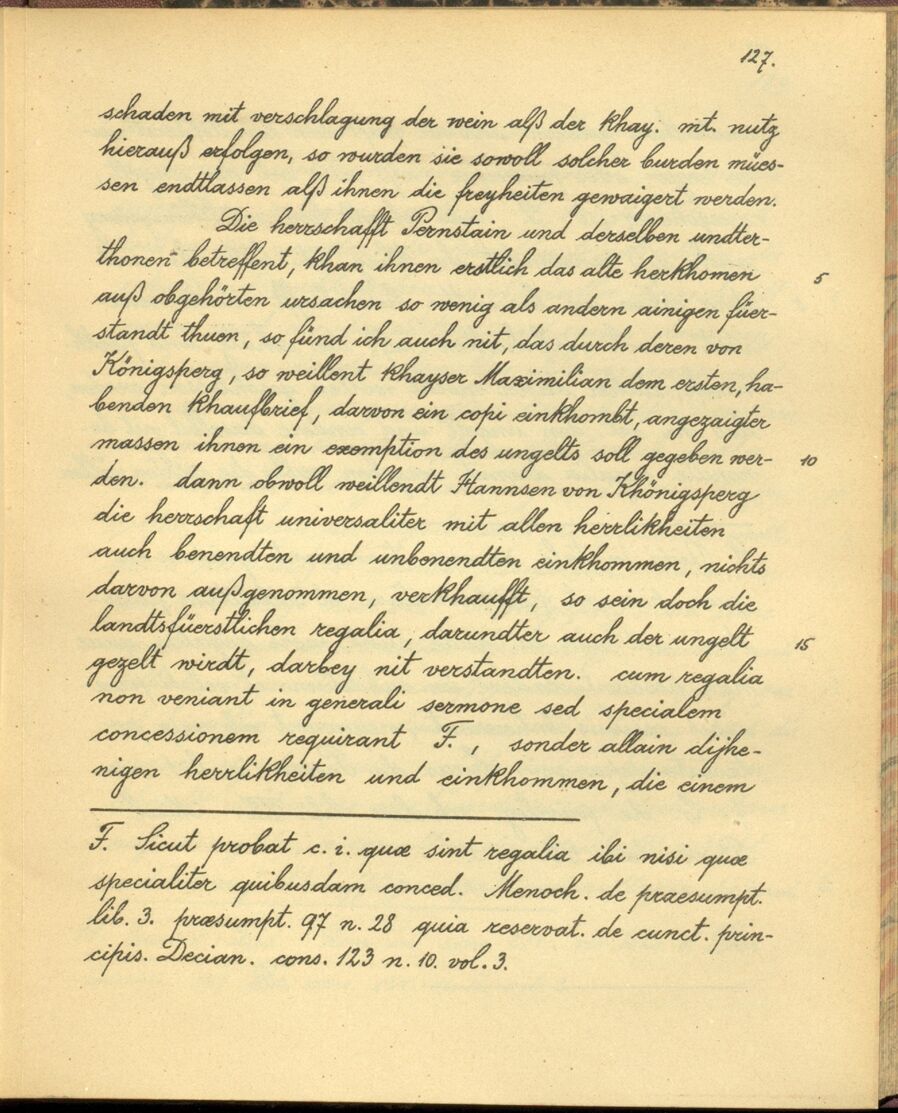 127.
schaden mit verschlagung der wein alß der khay. mt. nutz
hierauß erfolgen, so wurden sie sowoll solcher burden mües-
sen endtlassen alß ihnen die freyheiten gewaigert werden.
Die herrschafft Pernstain und derselben undter-
thonen betreffent, khan ihnen erstlich das alte herkhomen
5
auß obgehörten ursachen so wenig als andern ainigen füer-
standt thuen, so fünd ich auch nit, das durch deren von
Königsperg, so weillent Khayser Maximilian dem ersten, ha-
benden Khaufbrief, darvon ein copi einkhombt, angezaigter
massen ihnen ein exemption des ungelts soll gegeben wer-
10
den. dann obwoll weillendt Hannsen von Khönigsperg
die herrschaft universaliter mit allen herrlikheiten
auch benendten und unbenendten einkhommen, nichts
darvon außgenommen, verkhaufft, so sein doch die
landtsfüerstlichen regalia, darundter auch der ungelt
15
gezelt wirdt, darbey nit verstandten. cum regalia
non veniant in generali sermone sed specialem
concessionem requirant F., sonder allain dijhe-
nigen herrlikheiten und einkhommen, die einem
F. Sicut probat c. i. quæ sint regalia ibi nisi quæ
specialiter quibusdam conced. Menoch. de praesumpt.
lib. 3. præsumpt. 97 n. 28 quia reservat. de cunct. prin-
cipis. Decian. cons. 123 n. 10. vol. 3.